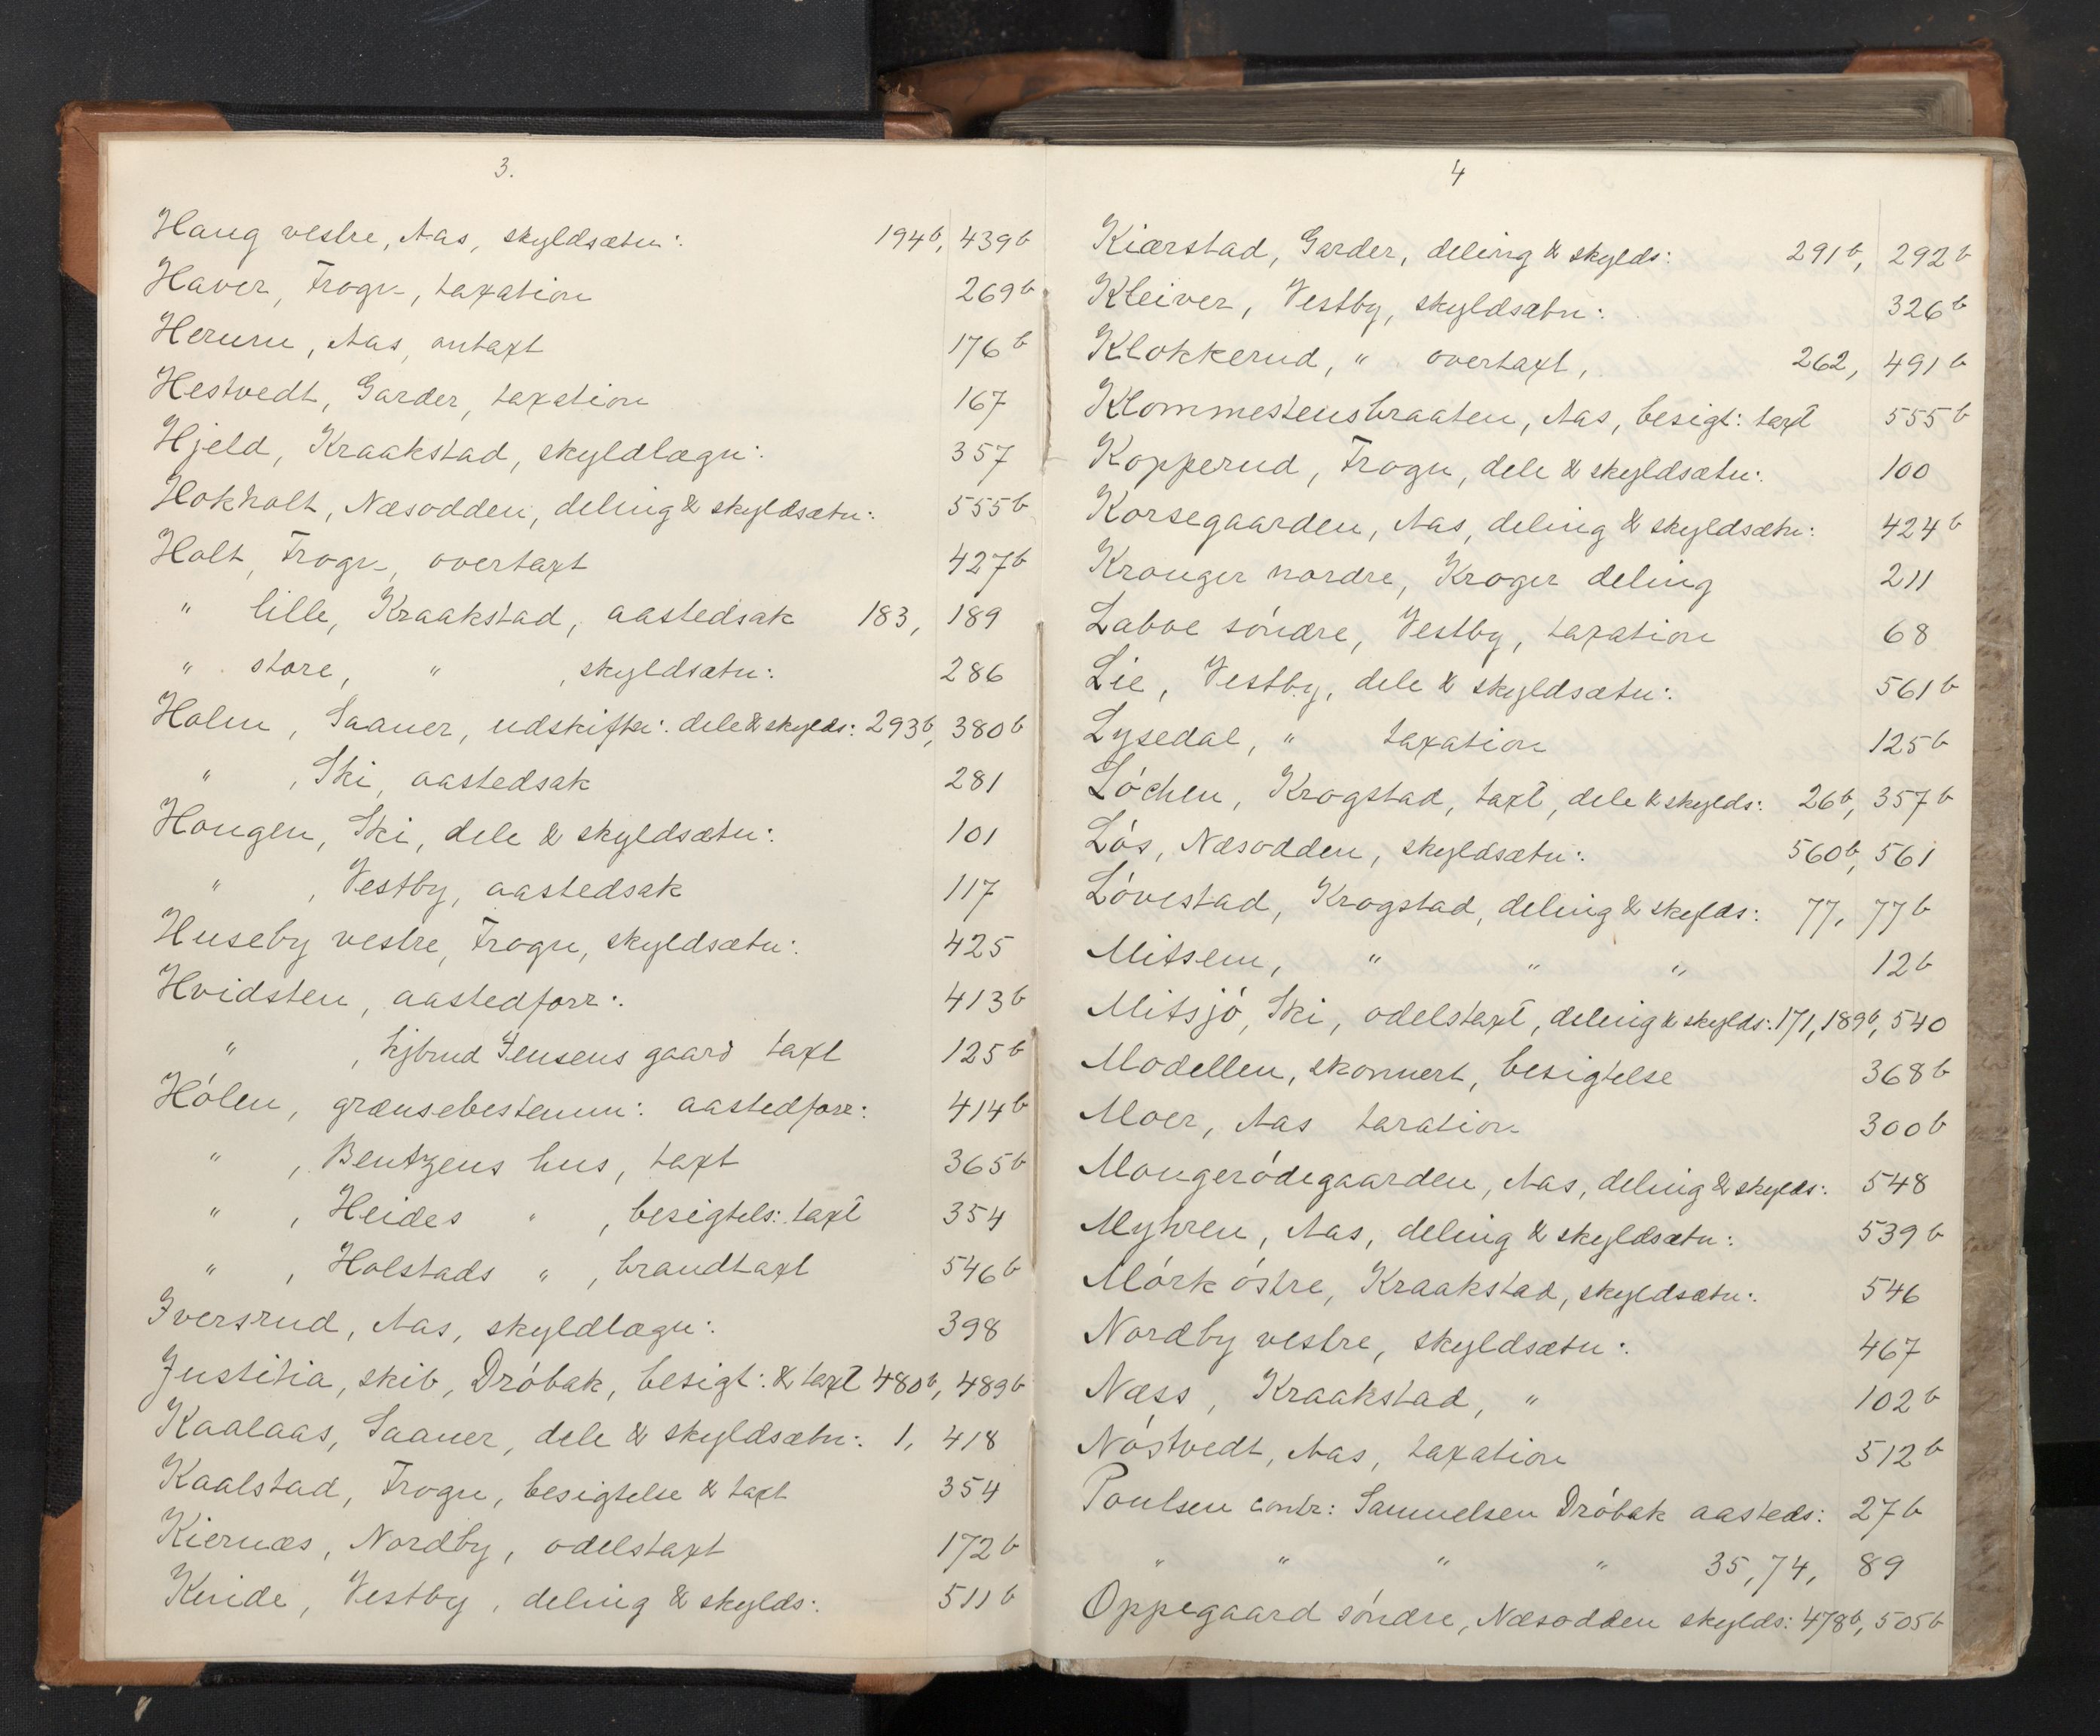 3.
Haug vestre, Aas, skyldsætn: 194b, 439b
Haver, Frogn, taxation 269b
Herum, Aas, omtaxt 176b
Hestvedt, Garder, taxation 167
Hjeld, Kraakstad, skyldlægn: 357
Hokholt, Næsodden, deling & skyldsætn: 555b
Holt, Frogn, overtaxt 427b
" lille, Kraakstad, aastedsak 183, 189
" store, " , skyldsætn: 286
Holm, Saaner, udskiftn: dele & skylds: 293b, 380b
" , Ski, aastedsak 281
Hougen, Ski, dele & skyldsætn: 101
" , Vestby, aastedsak 117
Huseby vestre, Frogn, skyldsætn: 425
Hvidsten, aastedforr: 413b
" , Jensens gaard taxt 125b
Hólen, grænsebestemm: aastedforr: 414b
" , Bentzens hus, taxt 365b
" , Heides " , besigtels: taxt 354
" , Holstads " , brandtaxt 546b
Iversrud, Aas, skyldlægn: 398
Justitia, skib, Dróbak, besigt: & taxt 480b, 489b
Kaalaas, Saaner, dele & skyldsætn: 1, 418
Kaalstad, Frogn, besigtelse & taxt 354
Kiernæs, Nordby, odelstaxt 172b
Kinde, Vestby, deling & skylds: 511b
4
Kiærstad, Garder, deling & skylds: 291b, 292b
Kleiver, Vestby, skyldsætn: 326b
Klokkerud, " overtaxt, 262, 491b
Klommestensbraaten, Aas, besigt: taxt 555b
Kopperud, Frogn, dele & skyldsætn: 100
Korsegaarden, Aas, deling & skyldsætn: 424b
Kronger nordre, Kroger deling 211
Laboe söndre, Vestby, taxation 68
Lie, Vestby, dele & skyldsætn: 561b
Lysedal, " taxation 125b
Lóchen, Krogstad, taxt, dele & skylds: 26b, 357b
Lós, Næsodden, skyldsætn: 560b, 561
Lóvestad, Krogstad, deling & skylds: 77, 77b
Mitsem, " " " 12b
Mitsjó, Ski, odelstaxt, deling & skylds: 171, 189b, 540
Modellen, skonnert, besigtelse 368b
Moer, Aas taxation 300b
Mongeródegaarden, Aas, deling & skylds: 548
Myhren, Aas, deling & skyldsætn: 539b
Mórk óstre, Kraakstad, skyldsætn: 546
Nordby vestre, skyldsætn: 467
Næss, Kraakstad, " 102b
Nóstvedt, Aas, taxation 512b
Poulsen contr: Samuelsen Dróbak aasteds: 27b
" " " " 35, 74, 89
Oppegaard söndre, Næsodden skylds: 478b, 505b